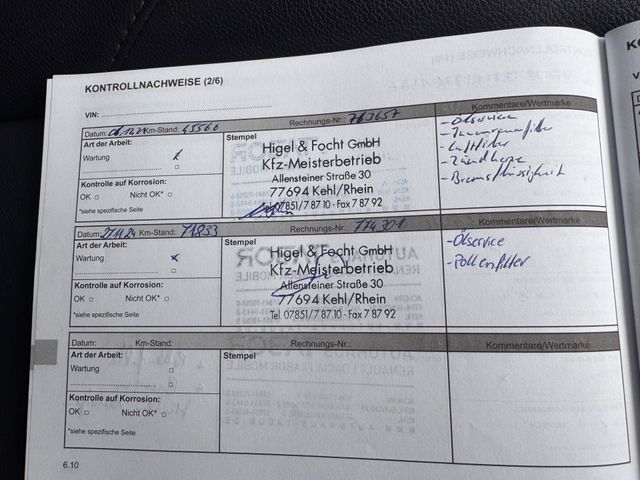 KONTROLLNACHWEISE (2/6)
VIN:
Kommentare/Wertmarke
Datum: Km-Stand: 45566 Rechnungs-Nr.: 763657
Art der Arbeit:
Wartung x
Kontrolle auf Korrosion:
OK □ Nicht OK* □
*siehe spezifische Seite
Stempel
Higel & Focht GmbH
Kfz-Meisterbetrieb
Allensteiner Straße 30
77694 Kehl/Rhein
Tel. 07851/7 87 10 · Fax 7 87 92
- Ölservice
- Innenraumfilter
- Luftfilter
- Zündkerze
- Bremsflüssigkeit
Datum: 27.11.24 Km-Stand: 71833 Rechnungs-Nr.: 774301
Kommentare/Wertmarke
Art der Arbeit:
Wartung x
Kontrolle auf Korrosion:
OK □ Nicht OK* □
*siehe spezifische Seite
Stempel
Higel & Focht GmbH
Kfz-Meisterbetrieb
Allensteiner Straße 30
77694 Kehl/Rhein
Tel. 07851/7 87 10 · Fax 7 87 92
- Ölservice
- Pollenfilter
Datum: Km-Stand: Rechnungs-Nr.:
Kommentare/Wertmarke
Art der Arbeit:
Wartung □
□
Kontrolle auf Korrosion:
OK □ Nicht OK* □
*siehe spezifische Seite
Stempel
6.10